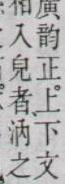 廣韵正上下文
相入皃者汭之